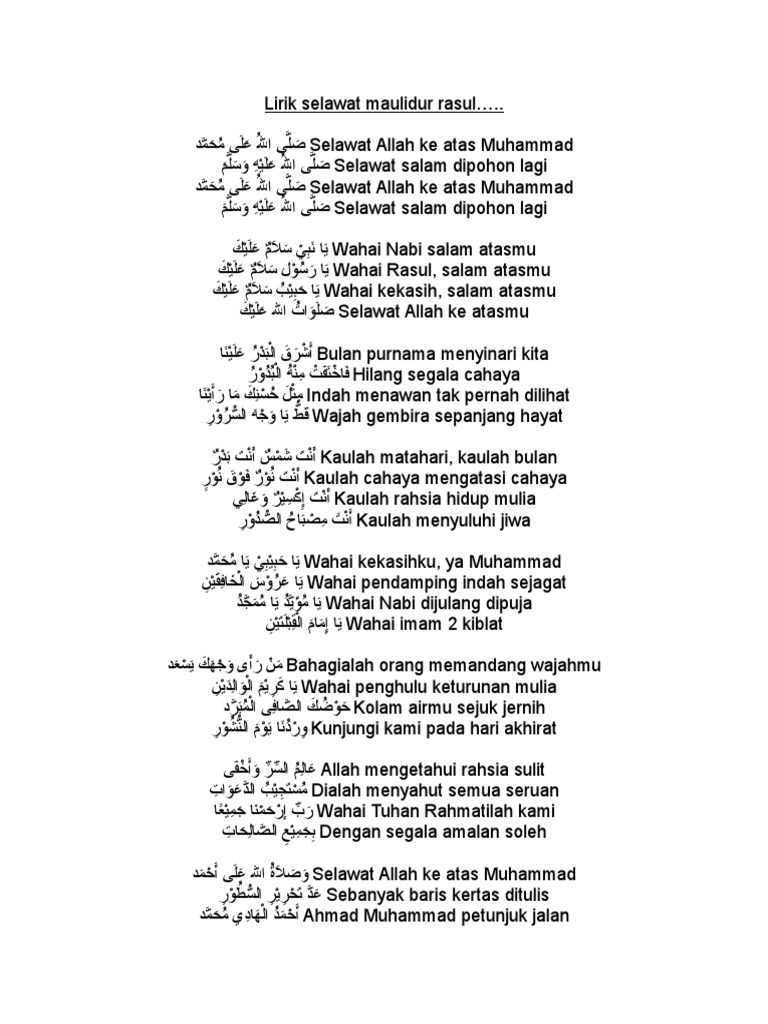 Lirik selawat maulidur rasul…..
صَلَّى اللهُ عَلَى مُحَمَّد Selawat Allah ke atas Muhammad
صَلَّى اللهُ عَلَيْهِ وَسَلَّمَ Selawat salam dipohon lagi
صَلَّى اللهُ عَلَى مُحَمَّد Selawat Allah ke atas Muhammad
صَلَّى اللهُ عَلَيْهِ وَسَلَّمَ Selawat salam dipohon lagi
يَا نَبِيْ سَلاَمٌ عَلَيْكَ Wahai Nabi salam atasmu
يَا رَسُوْل سَلاَمٌ عَلَيْكَ Wahai Rasul, salam atasmu
يَا حَبِيْبُ سَلاَمٌ عَلَيْكَ Wahai kekasih, salam atasmu
صَلَوَاتُ الله عَلَيْكَ Selawat Allah ke atasmu
أَشْرَقَ الْبَدْرُ عَلَيْنَا Bulan purnama menyinari kita
فَاخْتَفَتْ مِنْهُ الْبُدُوْرُ Hilang segala cahaya
مِثْلَ حُسْنِكَ مَا رَأَيْنَا Indah menawan tak pernah dilihat
قَطُّ يَا وَجْه السُّرُوْرِ Wajah gembira sepanjang hayat
أَنْتَ شَمْسٌ أَنْتَ بَدْرٌ Kaulah matahari, kaulah bulan
أَنْتَ نُوْرٌ فَوْقَ نُوْرٍ Kaulah cahaya mengatasi cahaya
أَنْتَ إِكْسِيْرٌ وَعَالِي Kaulah rahsia hidup mulia
أَنْتَ مِصْبَاحُ الصُّدُوْرِ Kaulah menyuluhi jiwa
يَا حَبِيْبِيْ يَا مُحَمَّد Wahai kekasihku, ya Muhammad
يَا عَرُوْسَ الْخَافِقَيْنِ Wahai pendamping indah sejagat
يَا مُؤَيَّدُ يَا مُمَجَّدُ Wahai Nabi dijulang dipuja
يَا إِمَامَ الْقِبْلَتَيْنِ Wahai imam 2 kiblat
مَنْ رَأَى وَجْهَكَ يَسْعَد Bahagialah orang memandang wajahmu
يَا كَرِيْمَ الْوَالِدَيْنِ Wahai penghulu keturunan mulia
حَوْضُكَ الصَّافِى الْمُبَرَّد Kolam airmu sejuk jernih
وِرْدُنَا يَوْمَ النُّشُوْرِ Kunjungi kami pada hari akhirat
عَالِمُ السِّرِّ وَأَخْفَى Allah mengetahui rahsia sulit
مُسْتَجِيْبُ الدَّعَوَاتِ Dialah menyahut semua seruan
رَبِّ إِرْحَمْنا جَمِيْعًا Wahai Tuhan Rahmatilah kami
بِجَمِيْعِ الصَّالِحَاتِ Dengan segala amalan soleh
وَصَلاَةُ الله عَلَى أَحْمَد Selawat Allah ke atas Muhammad
عَدَّ تَحْرِيْرِ السُّطُوْرِ Sebanyak baris kertas ditulis
أَحْمَدُ الْهَادِي مُحَمَّد Ahmad Muhammad petunjuk jalan